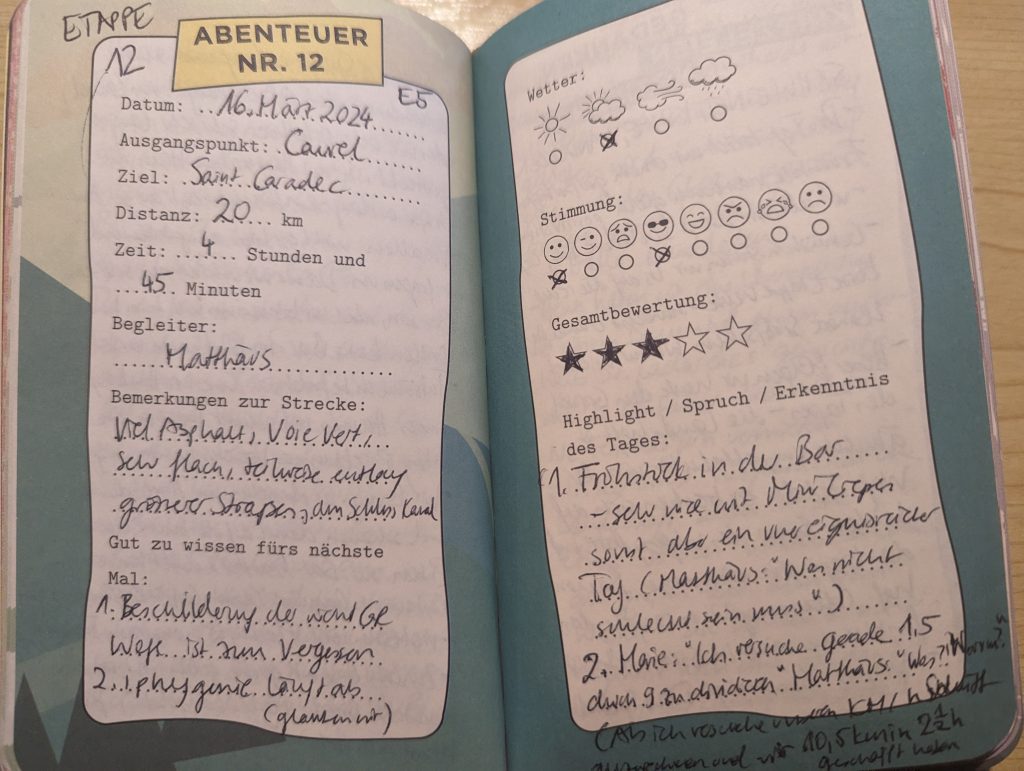 ETAPPE
12
ABENTEUER
NR. 12
E5
Datum: 16. März 2024
Ausgangspunkt: Caurel
Ziel: Saint Caradec
Distanz: 20 km
Zeit: 4 Stunden und
45 Minuten
Begleiter:
Matthäus
Bemerkungen zur Strecke:
Viel Asphalt, Voie Vert,
sehr flach, teilweise entlang
größerer Straßen, dann Schluss Kanal
Gut zu wissen fürs nächste
Mal:
1. Beschilderung der nicht GR
Wege ist zum Vergessen
2. iphygenie läuft ab
(glauben wir)
Wetter:
Stimmung:
Gesamtbewertung:
Highlight / Spruch / Erkenntnis
des Tages:
1. Frühstück in der Bar
- sehr nice mit Mini Crepes
sonst aber ein
Tag (Matthäus: "Was nicht
schlecht sein muss")
2. Marie: "Ich versuche gerade 1,5
durch 9 zu dividieren" Matthäus: "Was?! Warum?"
(Als ich versuche unseren KM/h Schnitt
auszurechnen und wir 10,5 km in 2 1/2 h
geschafft haben